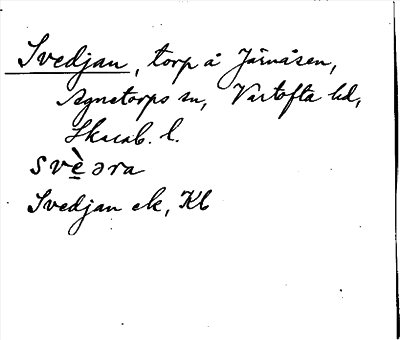 Svedjan, torp å Järnåsen,
Agnetorps sn, Vartofta hd,
Skarab. l.
svè̱əra
Svedjan ek, Kb